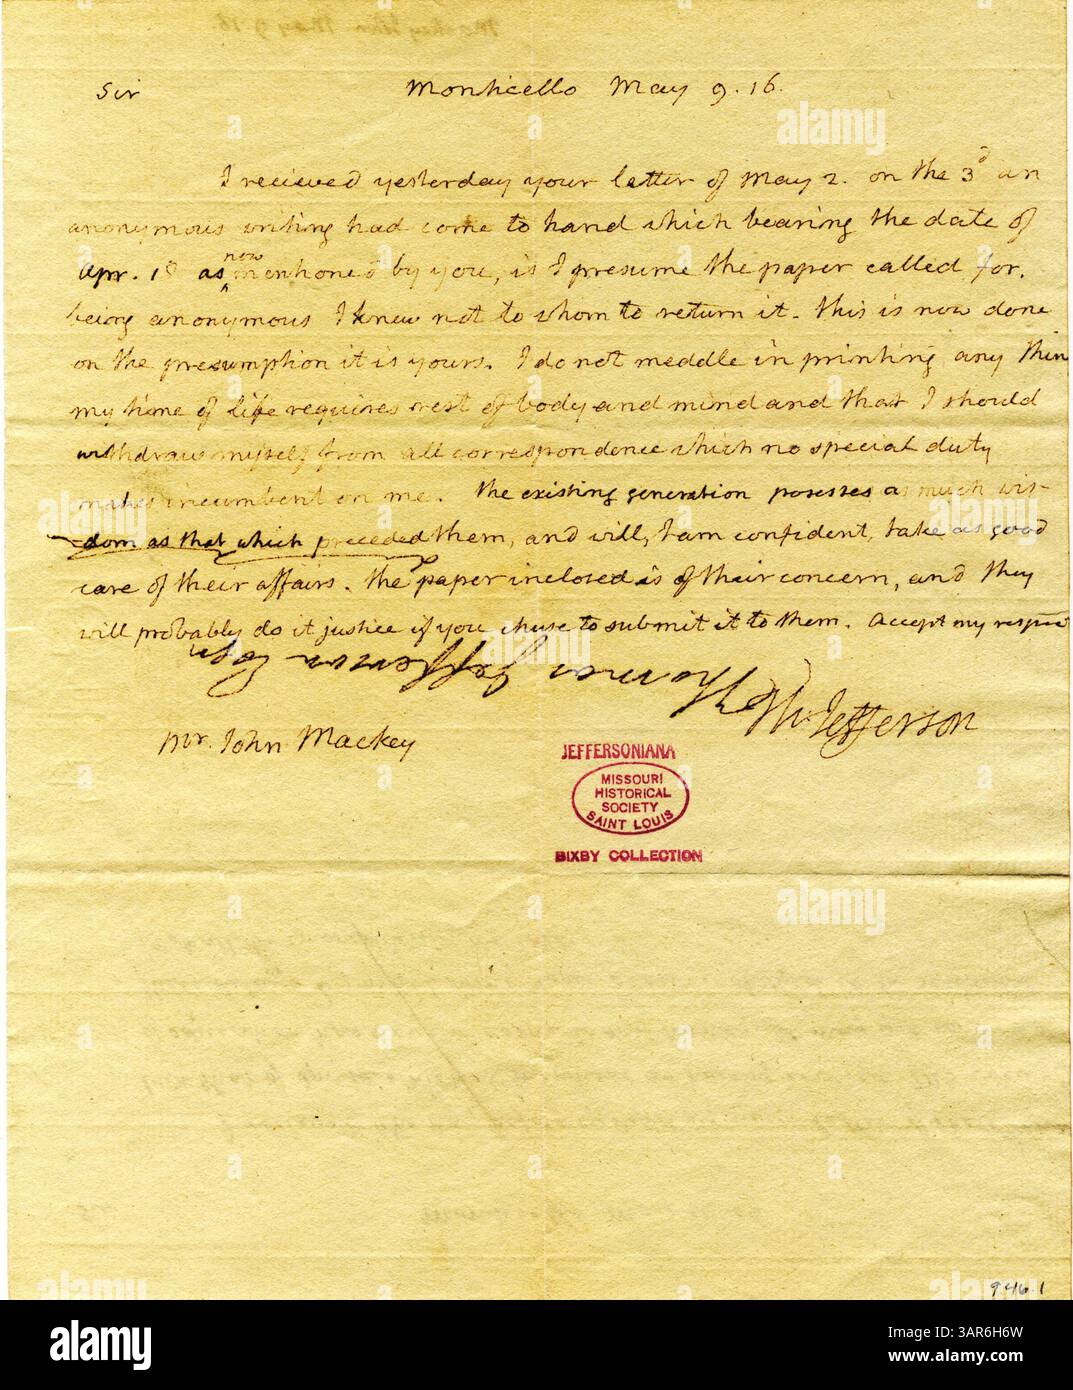 Sir Monticello May 9. 16.
I recieved yesterday your letter of May 2. on the 3d an
anonymous writing had come to hand which bearing the date of
Apr. 18 as now mentioned by you, is I presume the paper called for.
being anonymous I knew not to whom to return it. this is now done
on the presumption it is yours. I do not meddle in printing any thin
my time of life requires rest of body and mind and that I should
withdraw myself from all correspondence which no special duty
makes incumbent on me. the existing generation possesses as much wis-
dom as that which preceded them, and will, I am confident, take as good
care of their affairs. the paper inclosed is of their concern, and they
will probably do it justice if you chuse to submit it to them. Accept my respect
Thomas Jefferson Esqr.
Th: Jefferson
Mr. John Mackey
JEFFERSONIANA
MISSOURI
HISTORICAL
SOCIETY
SAINT LOUIS
BIXBY COLLECTION
946.1
alamy
Image ID: 3AR6H6W
www.alamy.com